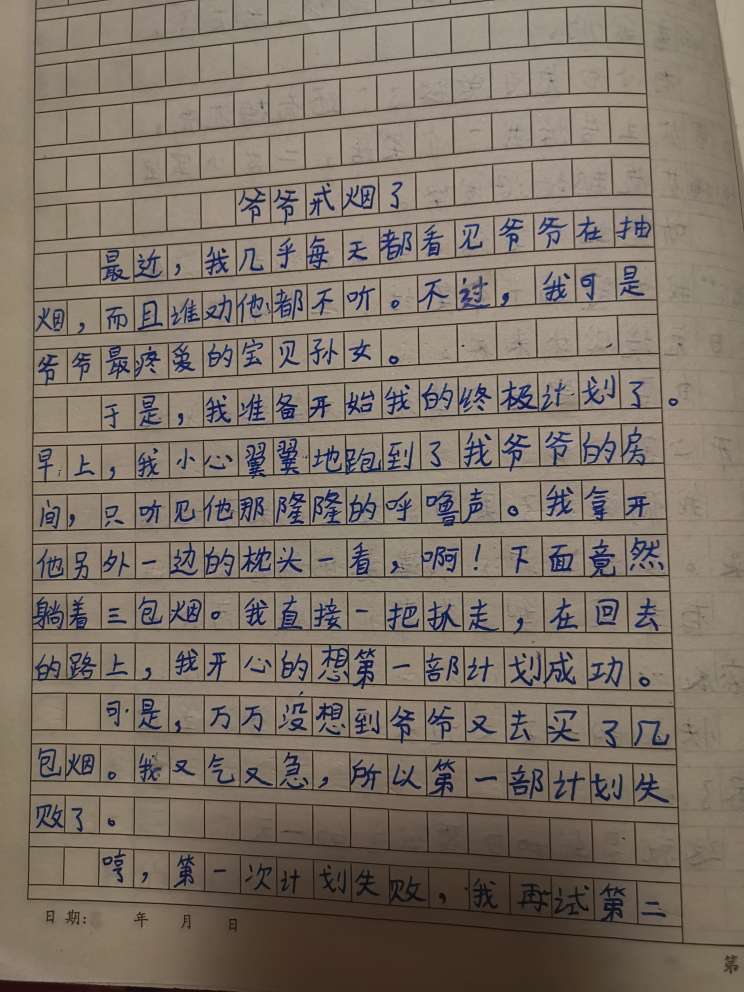 爷爷戒烟了
最近，我几乎每天都看见爷爷在抽
烟，而且谁劝他都不听。不过，我可是
爷爷最疼爱的宝贝孙女。
于是，我准备开始我的终极计划了。
早上，我小心翼翼地跑到了我爷爷的房
间，只听见他那隆隆的呼噜声。我拿开
他另外一边的枕头一看，啊！下面竟然
躺着三包烟。我直接一把抓走，在回去
的路上，我开心的想第一部计划成功。
可是，万万没想到爷爷又去买了几
包烟。我又气又急，所以第一部计划失
败了。
哼，第一次计划失败，我再试第二
日期： 年 月 日
第